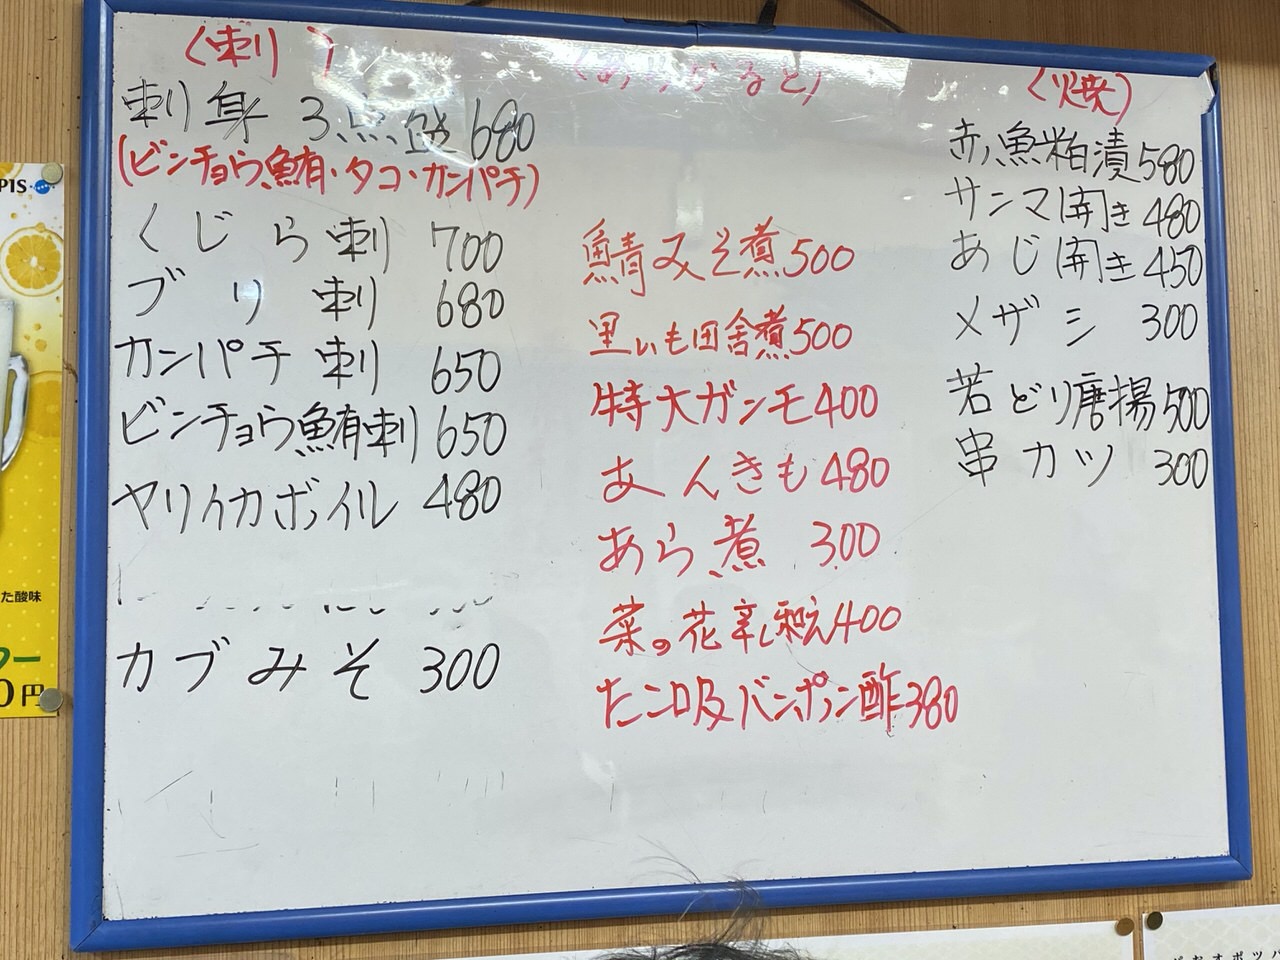 〈刺〉
刺身 3点盛 680
(ビンチョウ鮪・タコ・カンパチ)
くじら刺 700
ブリ刺 680
カンパチ刺 650
ビンチョウ鮪刺 650
ヤリイカボイル 480
カブみそ 300
鯖みそ煮 500
里いも田舎煮 500
特大ガンモ 400
あんきも 480
あら煮 300
菜の花辛し和え 400
たこ吸バンポン酢 380
〈焼〉
赤魚粕漬 580
サンマ開き 480
あじ開き 450
メザシ 300
若どり唐揚 500
串カツ 300
PIS
た酸味
ター
0円